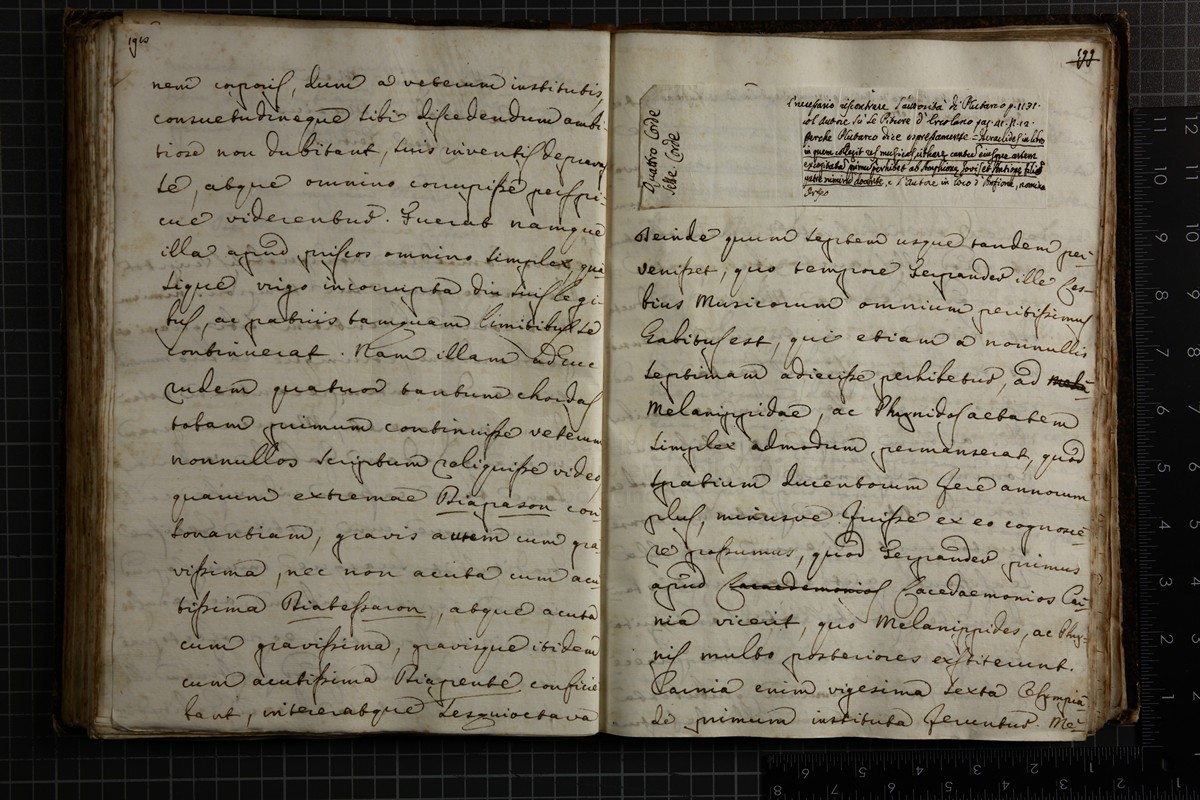 nem corporis, dum a veterum institutis,
consuetudineque sibi discedendum ambi-
tiose non dubitant, suis inventis deprava-
se, atque omnino corrupisse perspi-
cue viderentur. Fuerat namque
illa apud priscos omnino simplex, qua-
sique virgo incorrupta diu suis legi-
bus, ac patriis tamquam limitibus se
continuerat. Nam illam adhuc
rudem quatuor tantum chordas
totam primum continuisse veterum
nonnullos scriptum reliquisse video
quarum extremae Diapason con-
sonantiam, gravis autem cum gra-
vissima, nec non acuta cum acu-
tissima Diatessaron, atque acuta
cum gravissima, gravisque itidem
cum acutissima Diapente conficie-
bant, intereratque sesquioctava
199
Quattro Corde
Sette Corde
È necessario riscontrare l'autorità di Plutarco p. 1131.
col Autore su le Pitture d'Ercolano pag.
perche Plutarco dice espressamente = Heraclides in libro
in quem collegit res musicas, citharae cantus eiusque artem
excogitatam primum perhibet ab Amphione Jovis et Antiope filio
patre nimirum docente, e l'Autore in loco d'Anfione, nomina
Deinde quum septem usque tandem per-
venisset, quo tempore Terpander ille Les-
bius Musicorum omnium peritissimus
habitus est, qui etiam a nonnullis
septimam adiecisse perhibetur, ad
Melanippidae, ac Phrynidos aetatem
simplex admodum permanserat, quod
spatium ducentorum fere annorum
plus, minusve fuisse ex eo cognosce-
re possumus, quod Terpander primus
apud Lacaedemonios Lacedaemonios Car-
nia vicerit, quo Melanippides, ac Phry-
nis multo posteriores exstiterunt.
Carnia enim vigesima sexta Olympia-
de primum instituta feruntur. Me-